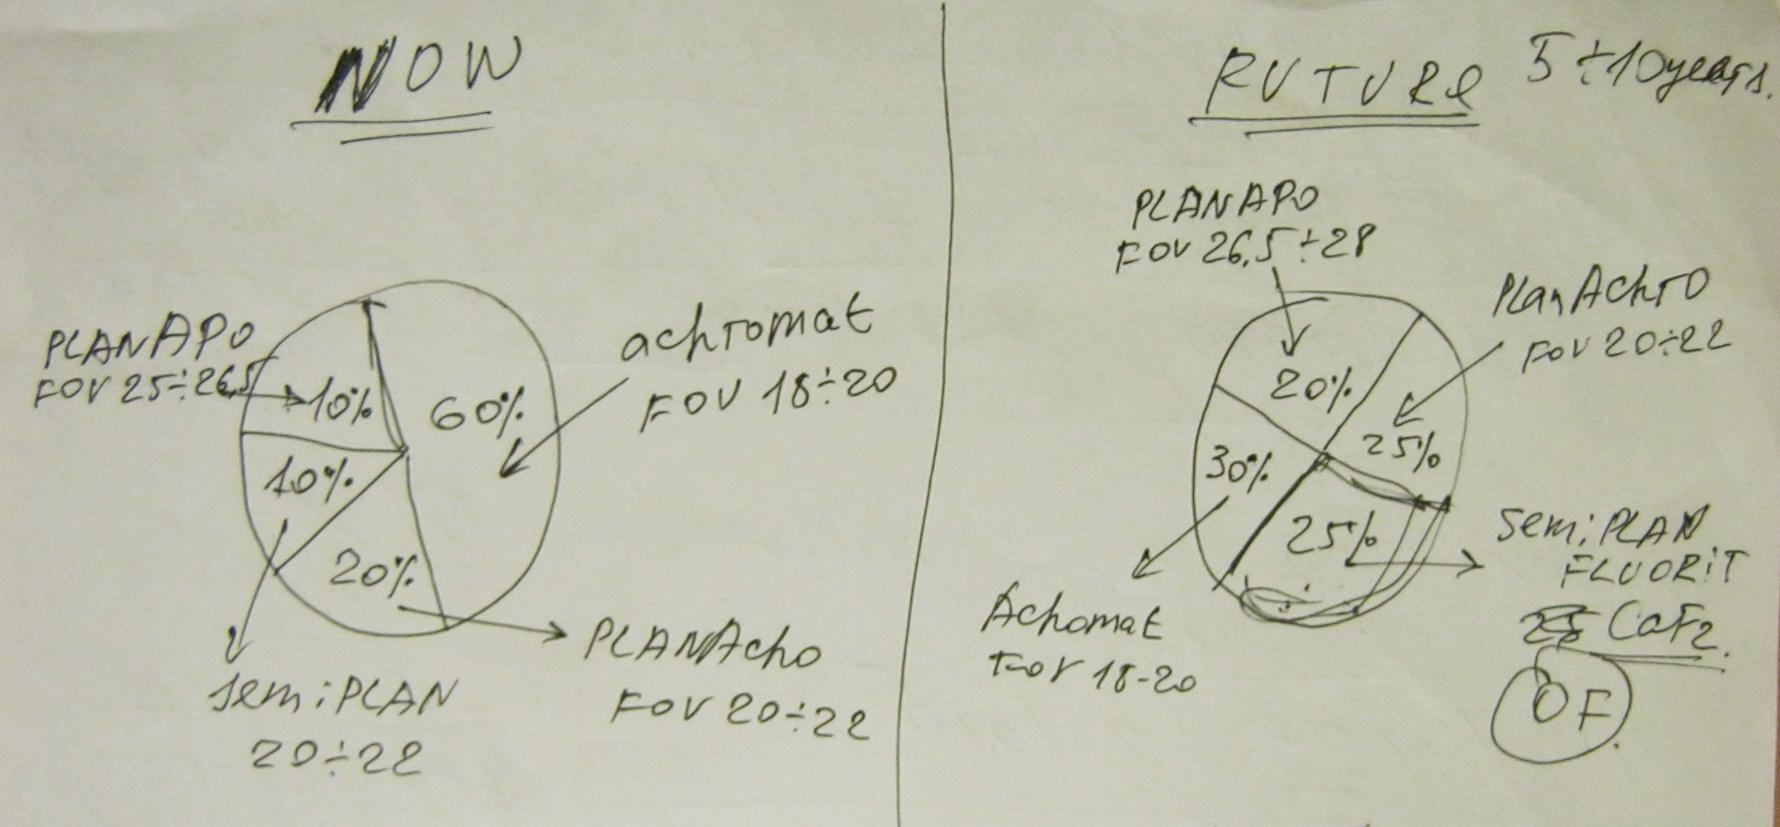 NOW
PLANAPO
FOV 25÷26,5
10%
60%
achromat
FOV 18÷20
10%
20%
semiPLAN
20÷22
PLANAcho
FOV 20÷22
FUTURe 5÷10years.
PLANAPO
FOV 26,5÷28
PlanAchro
FOV 20÷22
20%
25%
30%
25%
Achomat
FOV 18-20
semiPLAN
FLUORiT
CaF2.
OF